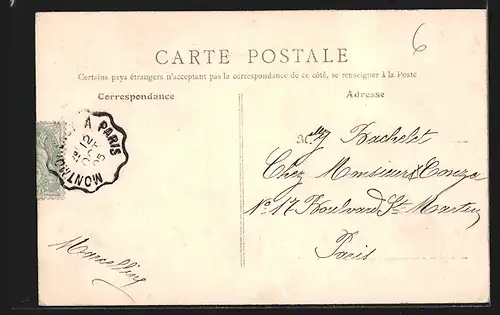 6
CARTE POSTALE
Certains pays étrangers n'acceptent pas la correspondance de ce côté, se renseigner à la Poste
Correspondance
Adresse
MONTMORENCY A PARIS
Melle Bachelet
Chez Monsieur
N° 17 Boulevard St Martin
Paris
Marcelline